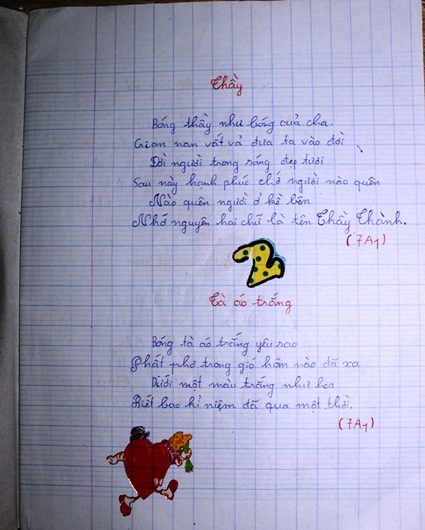 Thầy
Bóng thầy như bóng của cha.
Gian nan vất vả đưa ta vào đời
Đời người trong sáng đẹp tươi
Sau này hạnh phúc chớ người nào quên
Nào quên người ở kề bên
Nhớ nguyên hai chữ là tên Thầy Thành.
(7A1)
2
Tà áo trắng
Bóng tà áo trắng yêu sao
Phất phơ trong gió hôm nào đã xa
Dưới một màu trắng như hoa
Biết bao kỉ niệm đã qua một thời.
(7A1)